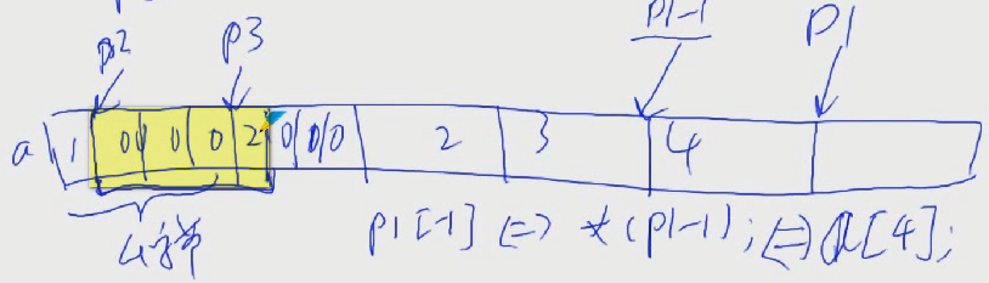 p2 p3 p1-1 p1
a 1 0 0 0 2 0 0 0 2 3 4
4字节 p1[-1] <=> *(p1-1); <=> a[4];